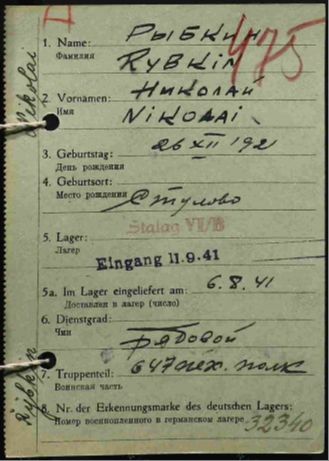 475
1. Name: РЫБКИН
Фамилия
RYBKIN
2. Vornamen: НИКОЛАЙ
Имя
NIKOLAI
3. Geburtstag: 26 XII 192
День рождения
4. Geburtsort:
Место рождения Стулово
5. Lager: Stalag VII/B
Лагер
Eingang 11.9.41
5a. Im Lager eingeliefert am: 6.8.41
Доставлен в лагер (число)
6. Dienstgrad:
Чин Рядовой
7. Truppenteil: 647 пех. полк
Воинская часть
8. Nr. der Erkennungsmarke des deutschen Lagers:
Номер военнопленного в германском лагере 32340
Nikolai
Rybkin